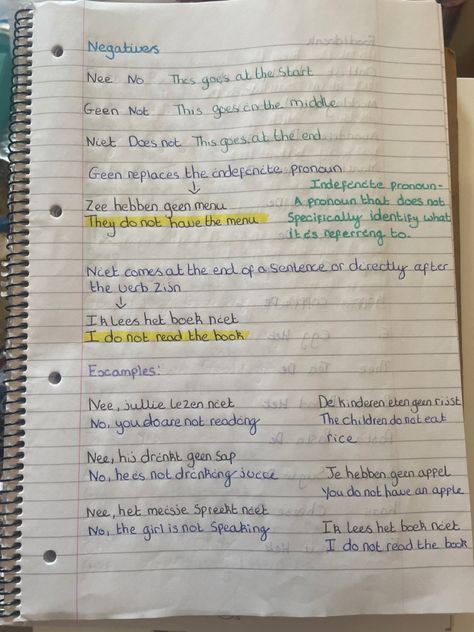 Negatives
Nee No This goes at the start
Geen Not This goes in the middle
Niet Does not This goes at the end
Geen replaces the indefinite pronoun
↓
Zee hebben geen menu
They do not have the menu
Indefincte pronoun-
A pronoun that does not
Specifically identify what
it's referring to.
Niet comes at the end of a sentence or directly after
the verb Zijn
↓
Ik lees het boek niet
I do not read the book
Examples:
Nee, jullie lezen niet
No, you do are not reading
De kinderen eten geen rijst
The children do not eat
rice
Nee, hij drinkt geen sap
No, he is not drinking juice
Je hebben geen appel
You do not have an apple
Nee, het meisje spreekt niet
No, the girl is not speaking
Ik lees het boek niet
I do not read the book